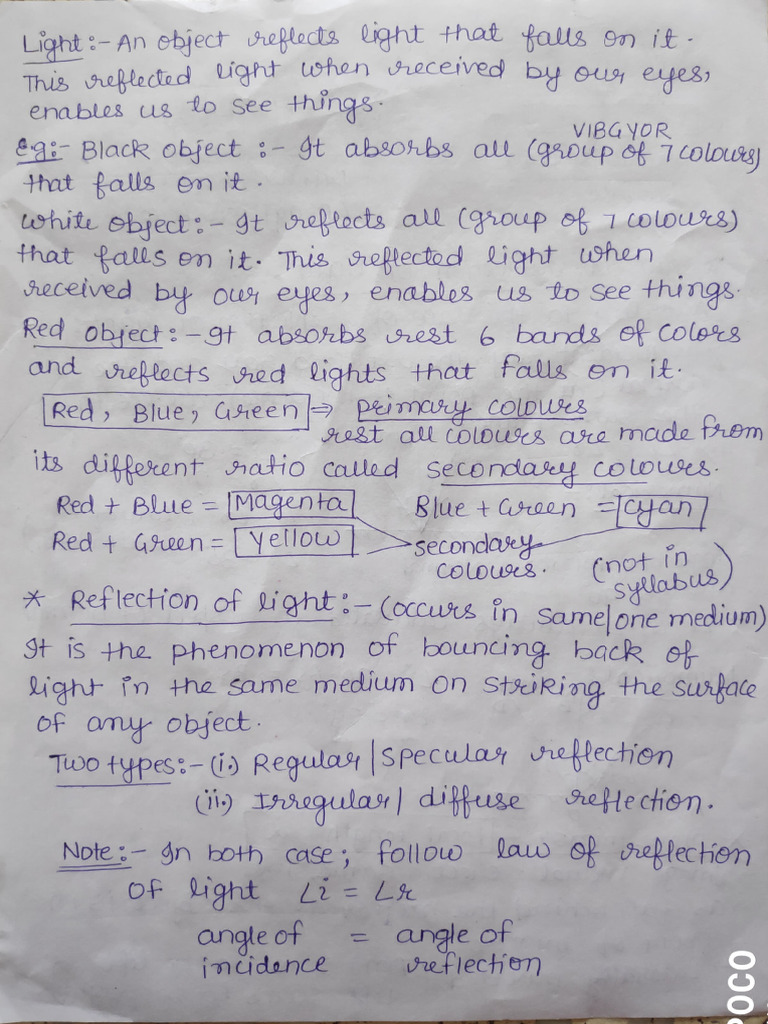 Light:- An object reflects light that falls on it.
This reflected light when received by our eyes,
enables us to see things.
VIBGYOR
Eg:- Black object :- It absorbs all (group of 7 colours)
that falls on it.
White object:- It reflects all (group of 7 colours)
that falls on it. This reflected light when
received by our eyes, enables us to see things.
Red object:- It absorbs rest 6 bands of colors
and reflects red lights that falls on it.
Red, Blue, Green ⇒ primary colours
rest all colours are made from
its different ratio called secondary colours.
Red + Blue = Magenta Blue + Green = cyan
Red + Green = Yellow secondary
colours. (not in
syllabus)
* Reflection of light:- (occurs in same/one medium)
It is the phenomenon of bouncing back of
light in the same medium on striking the surface
of any object.
Two types:- (i.) Regular/specular reflection
(ii.) Irregular/ diffuse reflection.
Note:- In both case; follow law of reflection
of light ∠i = ∠r
angle of = angle of
incidence reflection
POCO